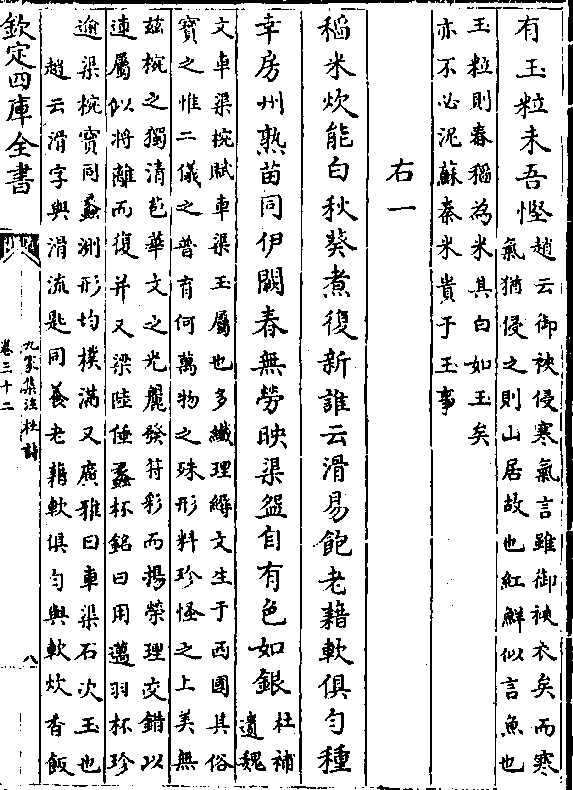 有玉粒未吾慳趙云御裌侵寒氣言雖御裌衣矣而寒
氣猶侵之則山居故也紅鮮似言魚也
玉粒則舂稻為米其白如玉矣
亦不必泥蘇秦米貴于玉事
右一
稻米炊能白秋葵煮復新誰云滑易飽老藉軟俱勻種
幸房州熟苗同伊闕春無勞映渠盌自有色如銀杜補
遺魏
文車渠椀賦車渠玉屬也多纖理縟文生于西國其俗
寶之惟二儀之普育何萬物之殊形料珍怪之上美無
茲椀之獨清苞華文之光麗發符彩而揚榮理交錯以
連屬似將離而復并又梁陸倕蠡杯銘曰用邁羽杯珍
逾渠椀寶同蠡測形均樸滿又廣雅曰車渠石次玉也
趙云滑字與滑流匙同義老藉軟俱勻與軟炊香飯
欽定四庫全書
九家集注杜詩
卷三十二
八